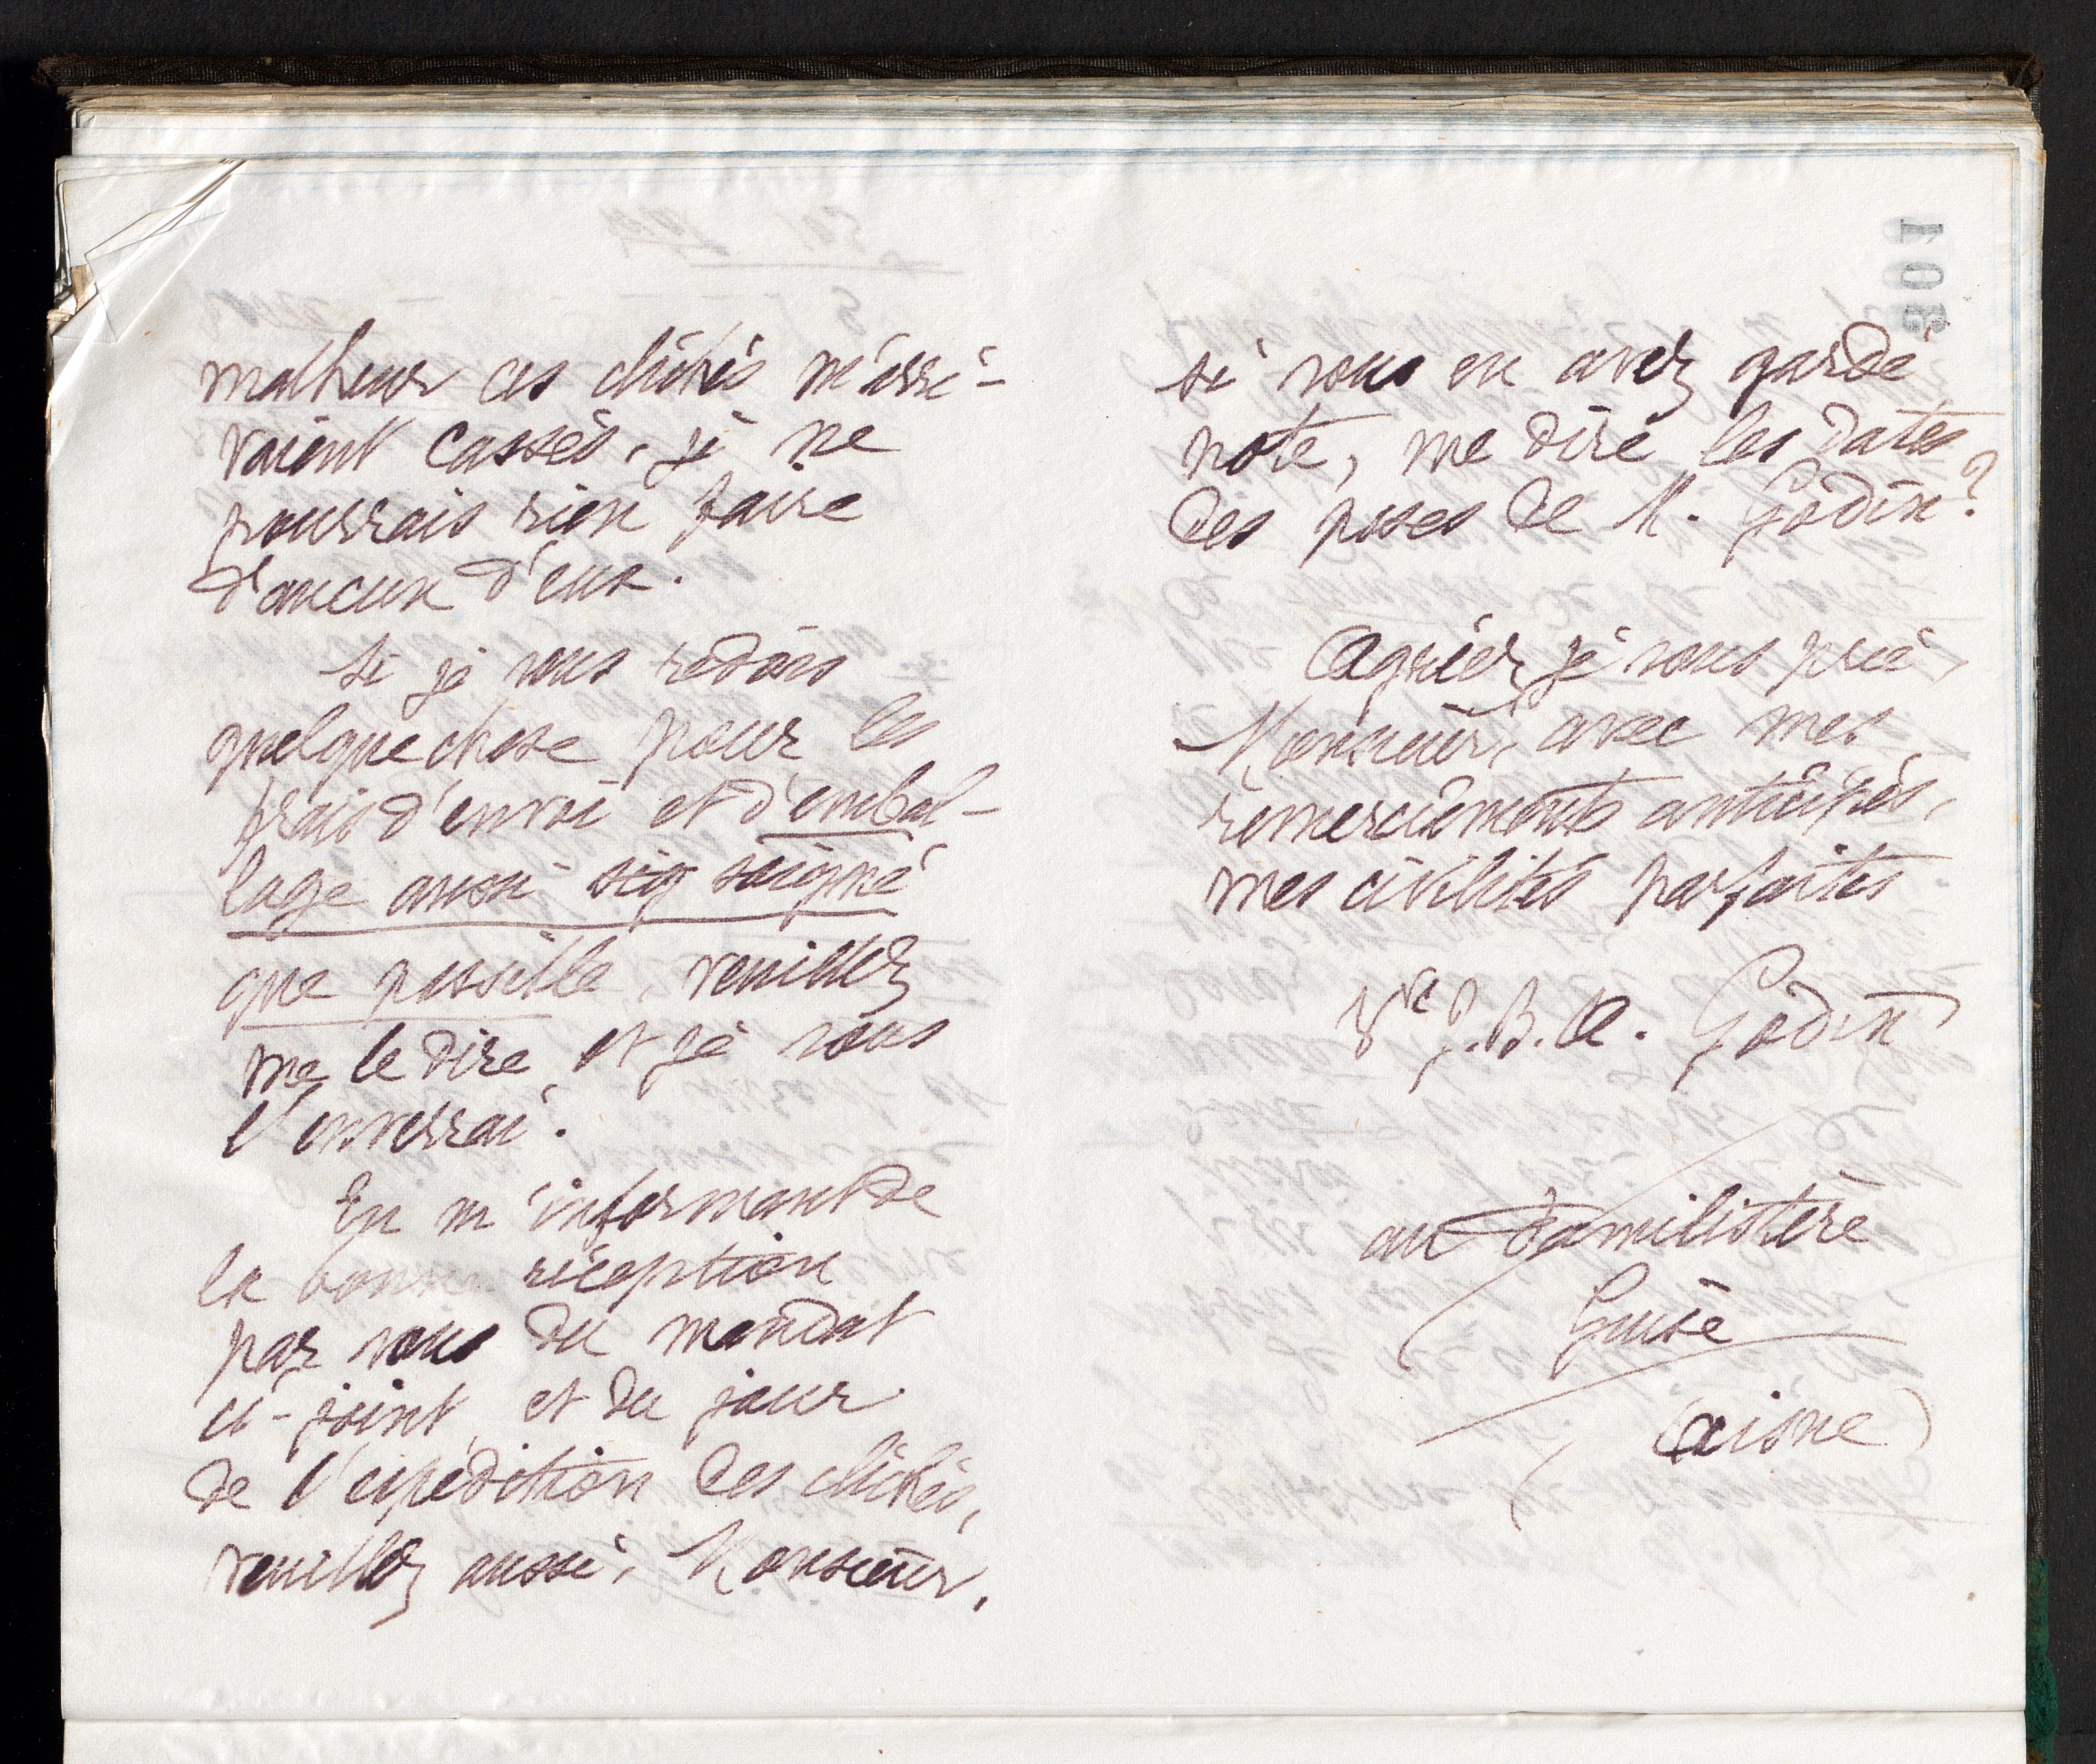 malheur ces clichés m'arri-
vaient cassés, je ne
pourrais rien faire
d'aucun d'eux.
Si je vous redois
quelque chose pour les
frais d'envoi et d'embal-
lage aussi sig soigné
que possible, veuillez
me le dire et je vous
l'enverrai.
En m'informant de
la bonne réception
par vous du mandat
ci-joint et du jour
de l'expédition des clichés,
veuillez aussi, Monsieur,
301
si vous en avez gardé
note, me dire les dates
des poses de M. Godin?
Agréez je vous prie,
Monsieur, avec mes
remerciements anticipés,
mes civilités parfaites
Ve J. B. A. Godin
au Familistère
Guise
(Aisne)